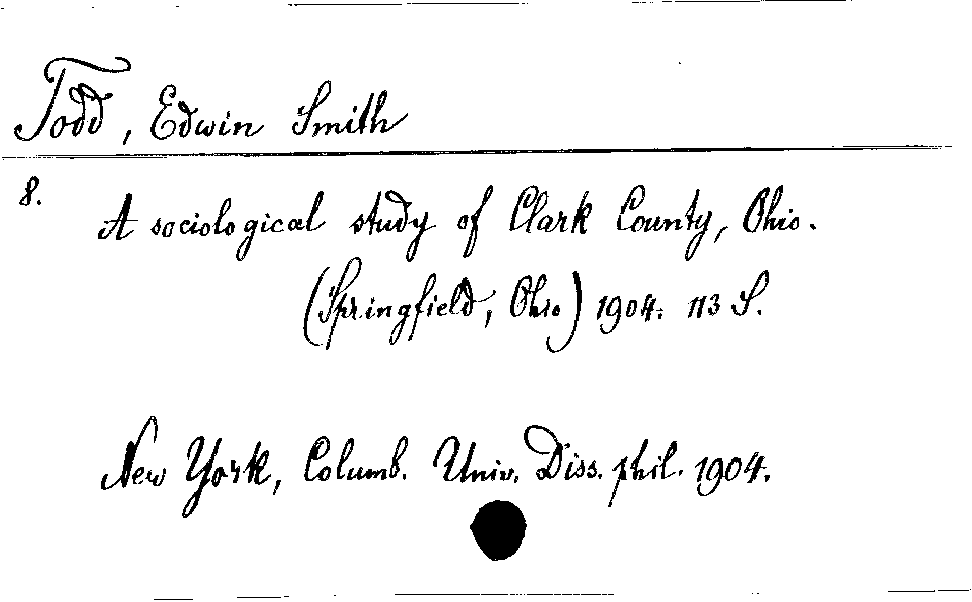 Todd, Edwin Smith
8.
A sociological study of Clark County, Ohio.
(Springfield, Ohio) 1904. 113 S.
New York, Columb. Univ. Diss. phil. 1904.